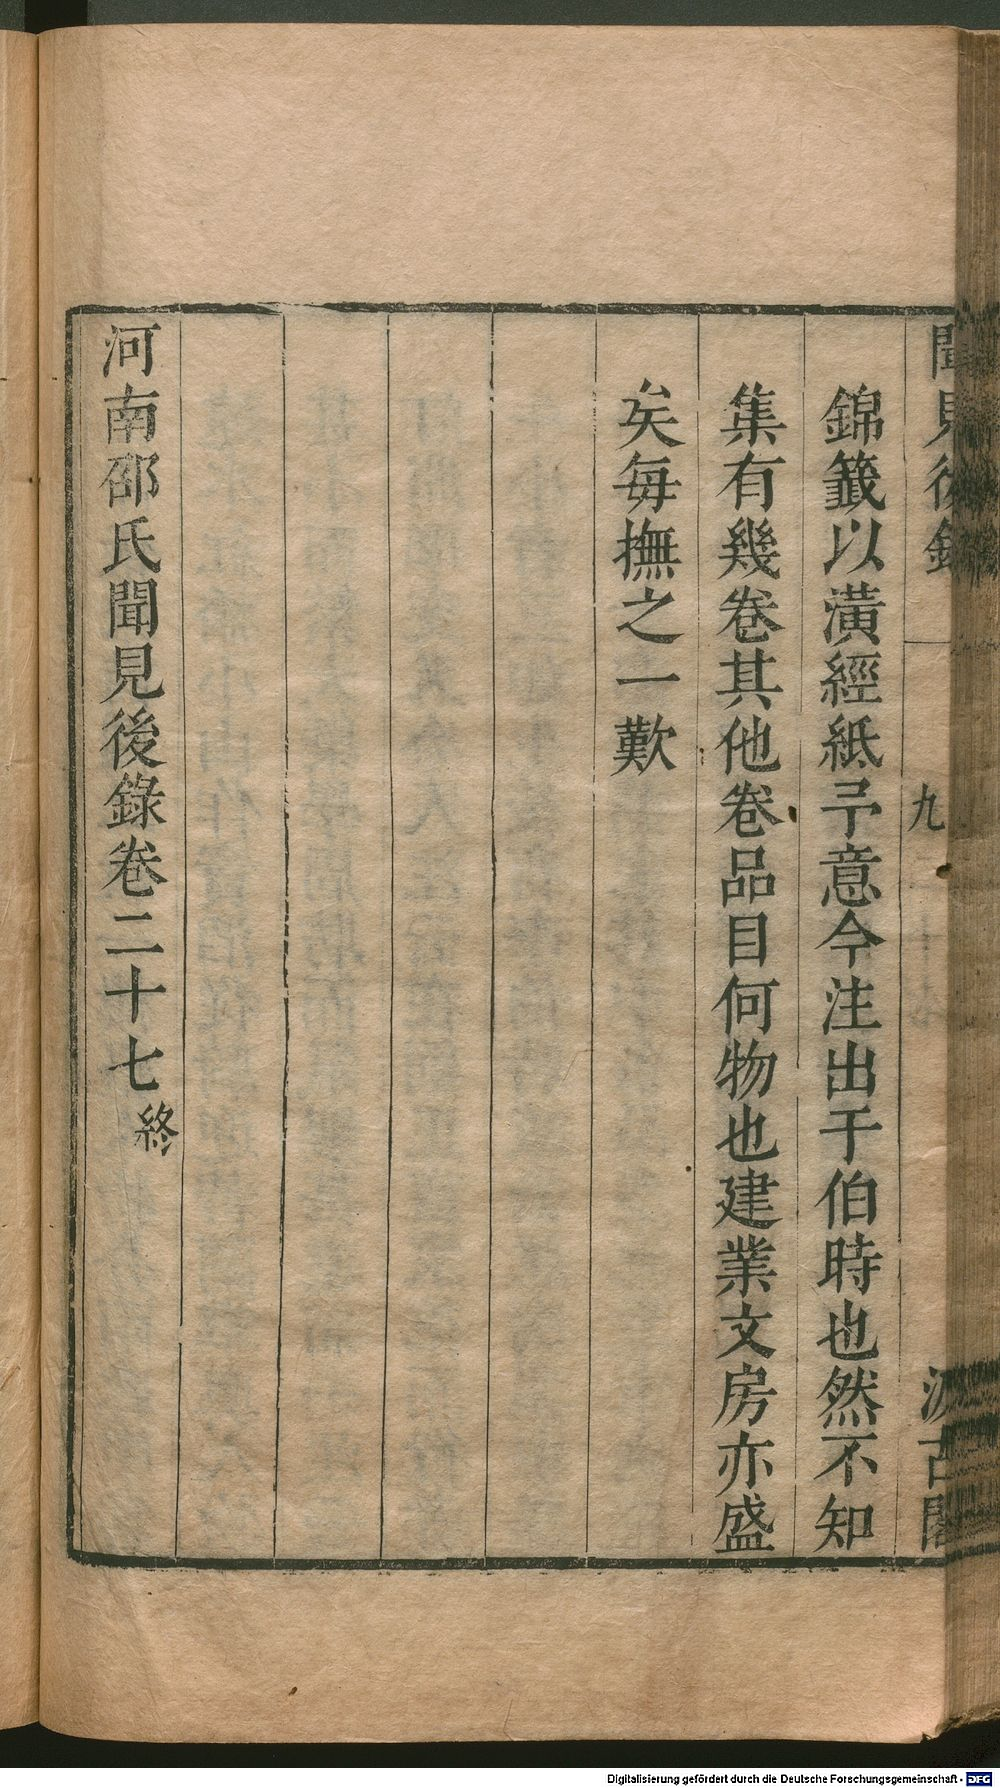 聞見後錄
九
汲古閣
錦籤以潢經紙予意今注出于伯時也然不知
集有幾卷其他卷品目何物也建業文房亦盛
矣每撫之一歎
河南邵氏聞見後錄卷二十七終
Digitalisierung gefördert durch die Deutsche Forschungsgemeinschaft - DFG